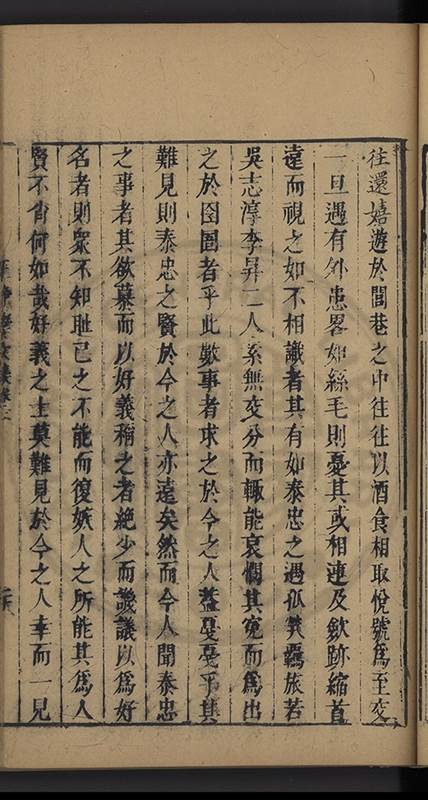 往還嬉遊於閭巷之中往往以酒食相取悅號爲至交
一旦遇有外患畧如絲毛則憂其或相連及歛跡縮首
遠而視之如不相識者其有如泰忠之遇孤煢羇旅若
吳志淳李昇二人素無交分而輙能哀憫其寃而爲出
之於囹圄者乎此數事者求之於今之人葢戞戞乎其
難見則泰忠之賢於今之人亦遠矣然而今人聞泰忠
之事者其欲慕而以好義稱之者絶少而譏議以爲好
名者則衆不知耻己之不能而復嫉人之所能其爲人
賢不肖何如哉好義之士莫難見於今之人幸而一見